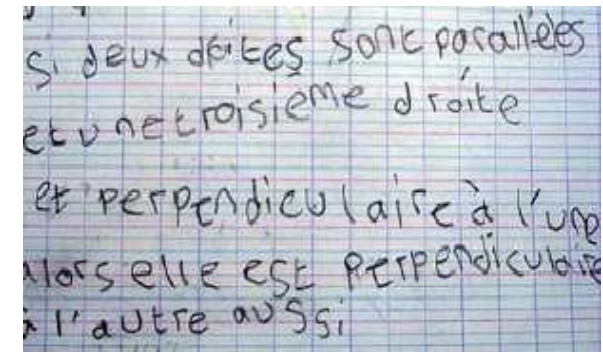 si deux droites sont parallèles
et une troisième droite
et perpendiculaire à l'une
alors elle est perpendiculaire
à l'autre aussi